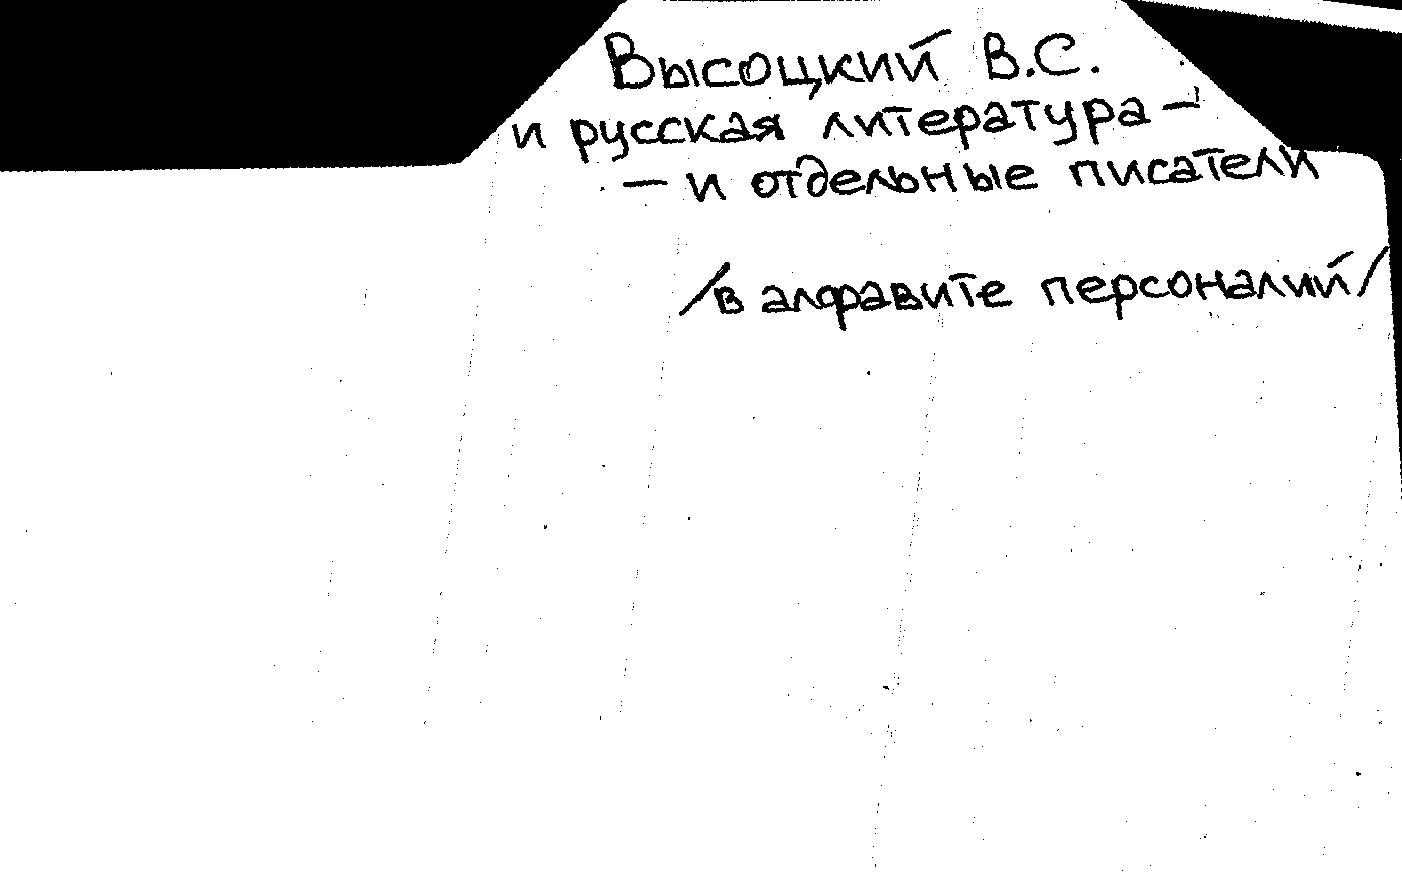 Высоцкий В.С.
и русская литература –
– и отдельные писатели
/в алфавите персоналий/